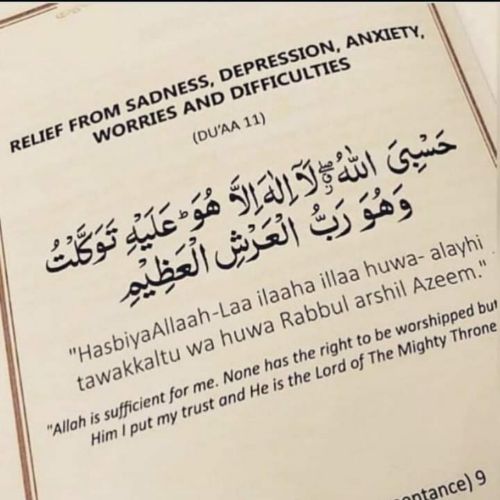 RELIEF FROM SADNESS, DEPRESSION, ANXIETY,
WORRIES AND DIFFICULTIES
(DU'AA 11)
حَسْبِىَ اللّٰهُ ۖ لَآ اِلٰهَ اِلَّا هُوَ ؕ عَلَيْهِ تَوَكَّلْتُ
وَهُوَ رَبُّ الْعَرْشِ الْعَظِيْمِ
"HasbiyaAllaah-Laa ilaaha illaa huwa- alayhi
tawakkaltu wa huwa Rabbul arshil Azeem."
"Allah is sufficient for me. None has the right to be worshipped but
Him I put my trust and He is the Lord of The Mighty Throne
9